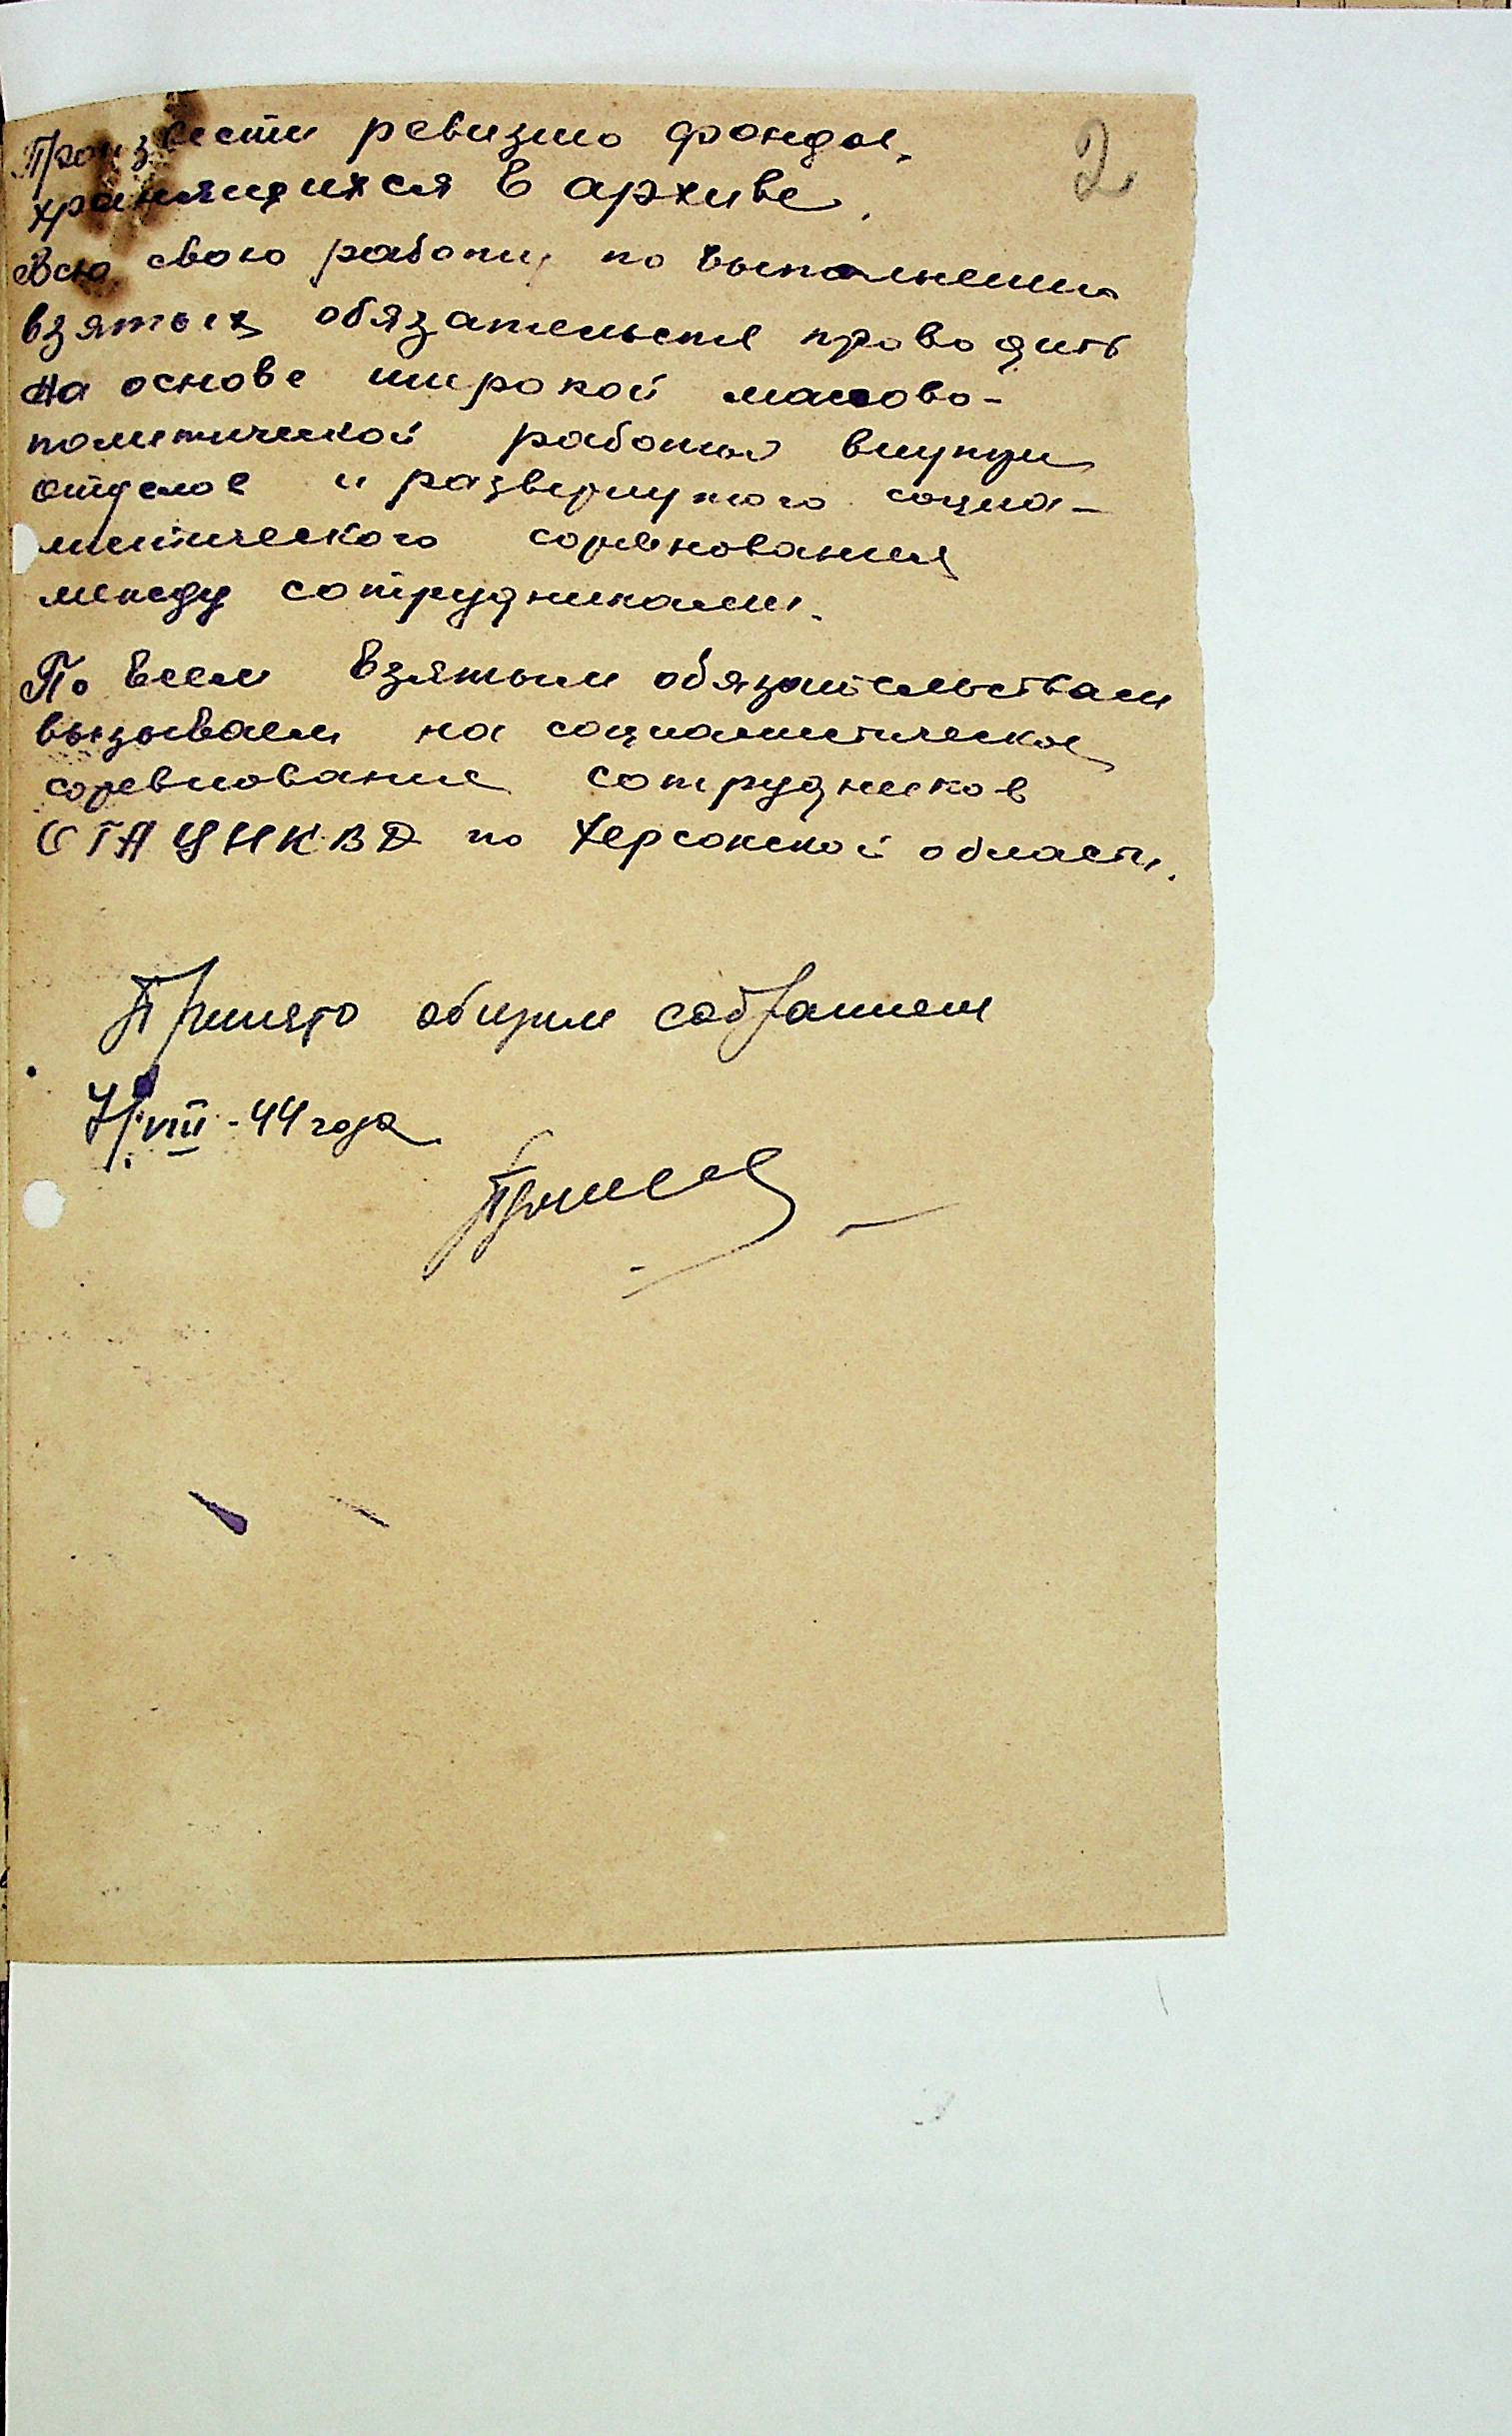 2
Произвести ревизию фондов,
хранящихся в архиве.
Всю свою работу по выполнению
взятых обязательств проводить
на основе широкой массово-
политической работы внутри
отделов и развернутого социа-
листического соревнования
между сотрудниками.
По всем взятым обязательствам
вызываем на социалистическое
соревнование сотрудников
ОГА УНКВД по Херсонской области.
Принято общим собранием
7/VIII-44 года